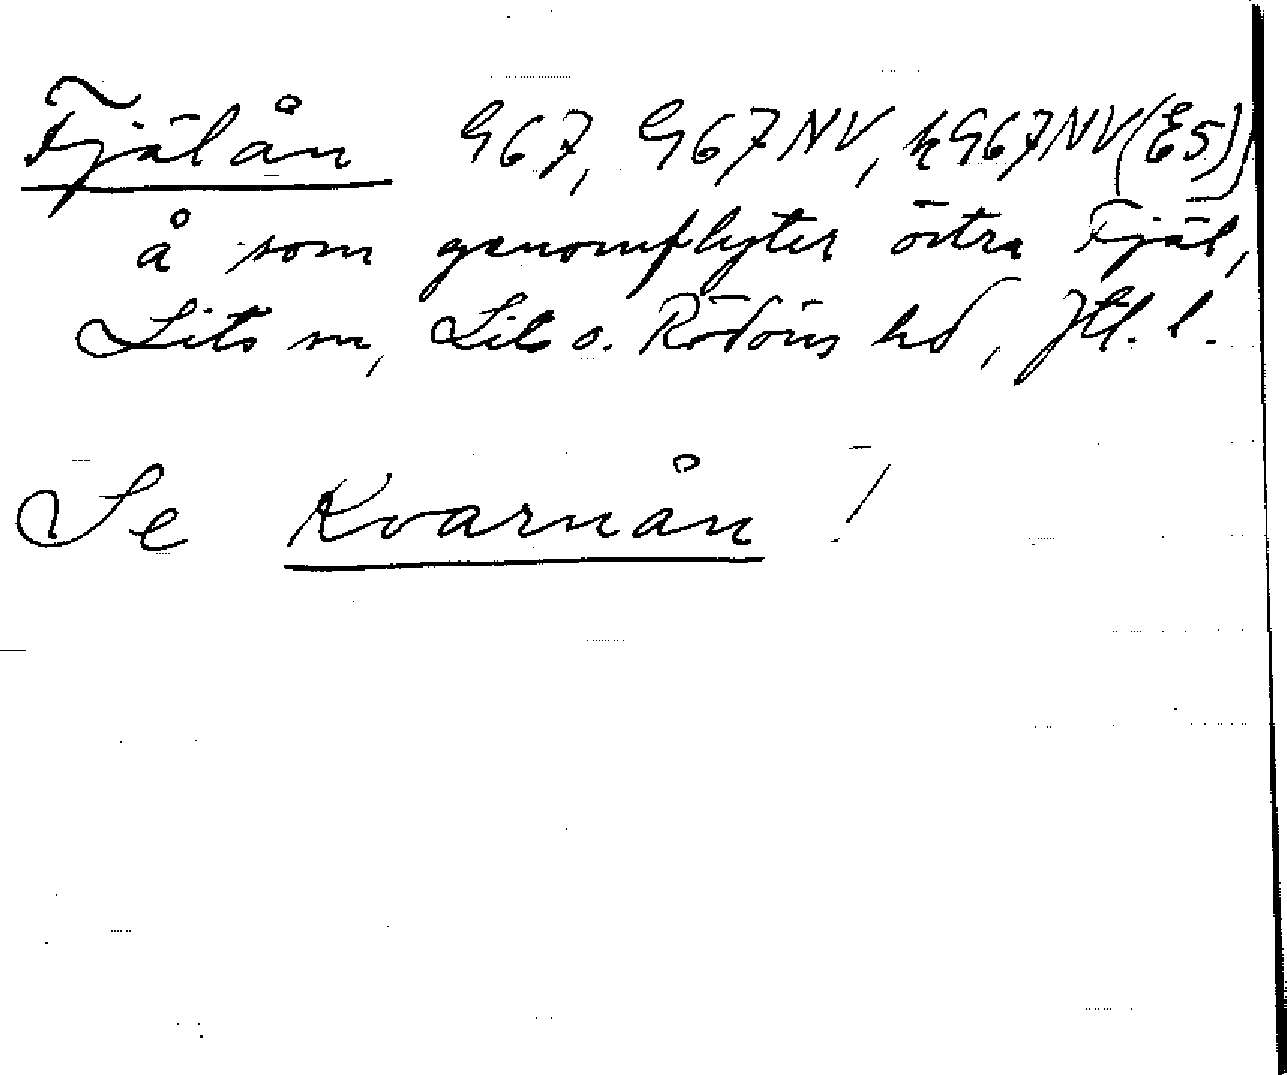 Fjälån G67, G67NV, hG67NV(E5)
å som genomflyter östra Fjäl,
Lits sn, Lits o. Rödöns hd, Jtl. l.
Se Kvarnån!